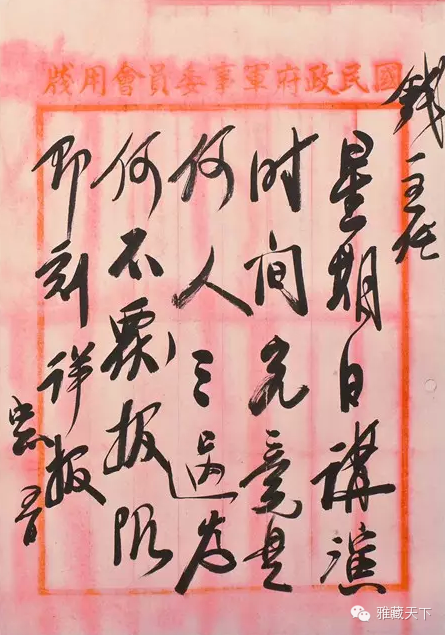 國民政府軍事委員會用牋
錢主任
星期日講演
时间究竟是
何人三为
何不报限
即刻详报
雅藏天下